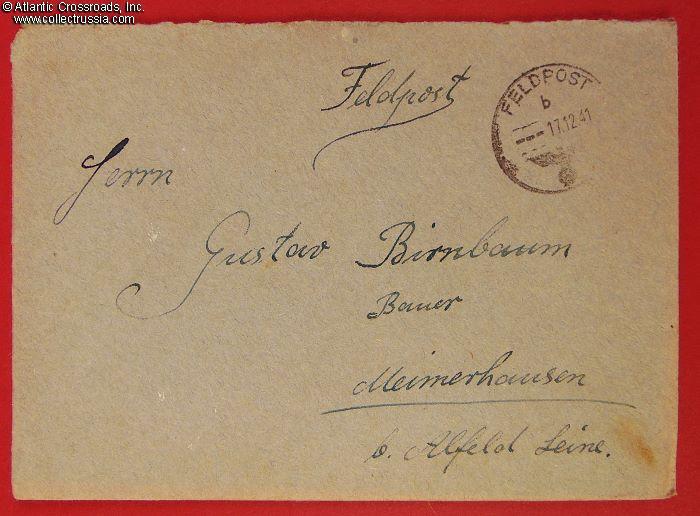 © Atlantic Crossroads, Inc.
www.collectrussia.com
Feldpost
FELDPOST
b
17.12.41
Herrn
Gustav Birnbaum
Bauer
Meimerhausen
b. Alfeld Leine.